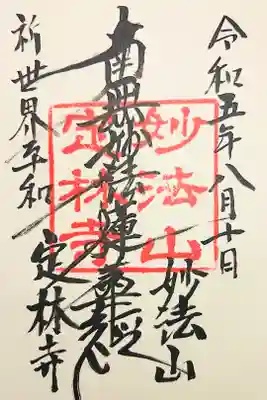 令和五年八月十日
妙法山
南無妙法蓮華経
定林寺
祈世界平和
妙法山
定林寺